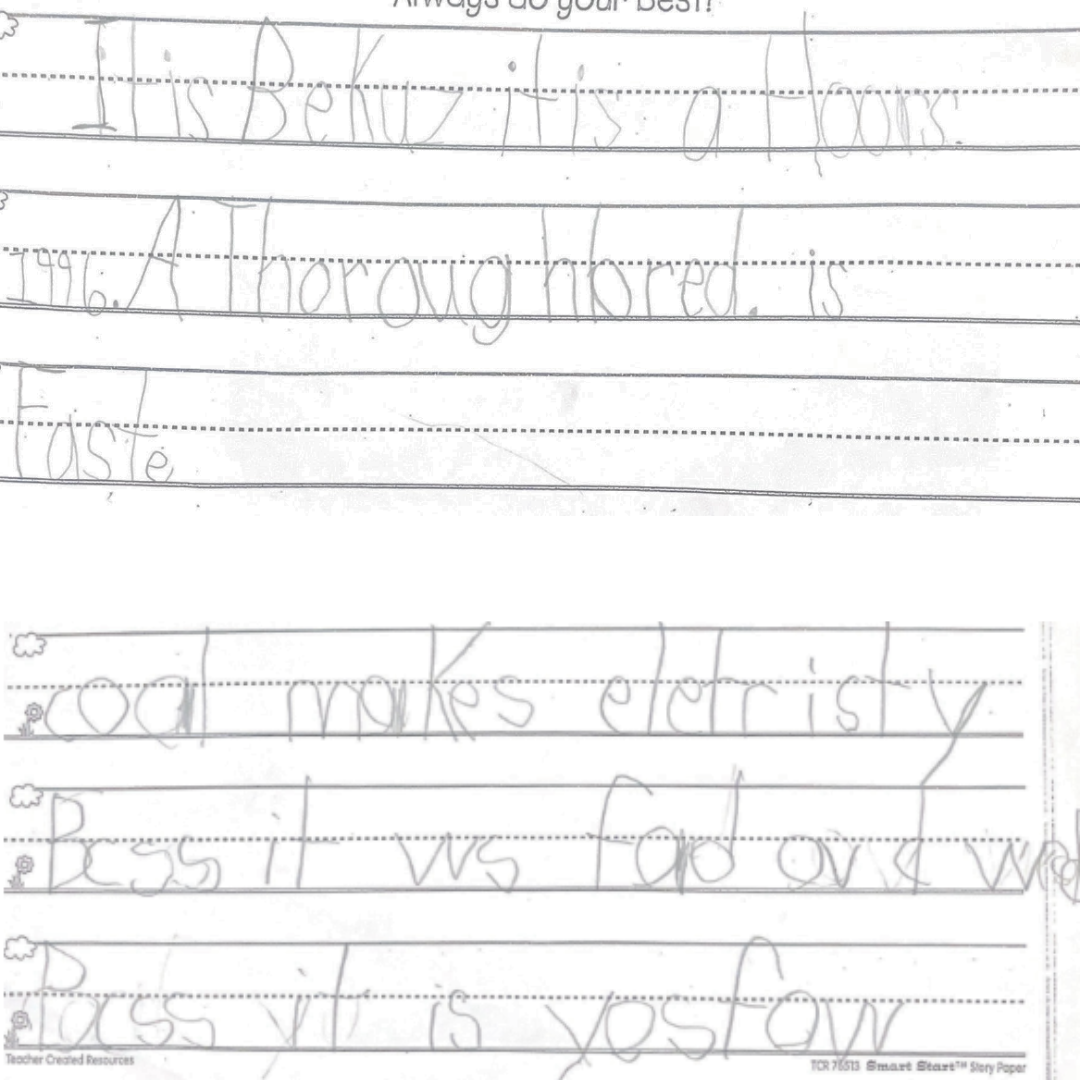 Always do your best!
It is Bekuz it is a Hoors.
1996. A Thoroughbred. is
Faste
coal makes eletristy
Bcss it ws fad
Bacss it is yosfow
Teacher Created Resources
TCR 76513 Smart Start™ Story Paper